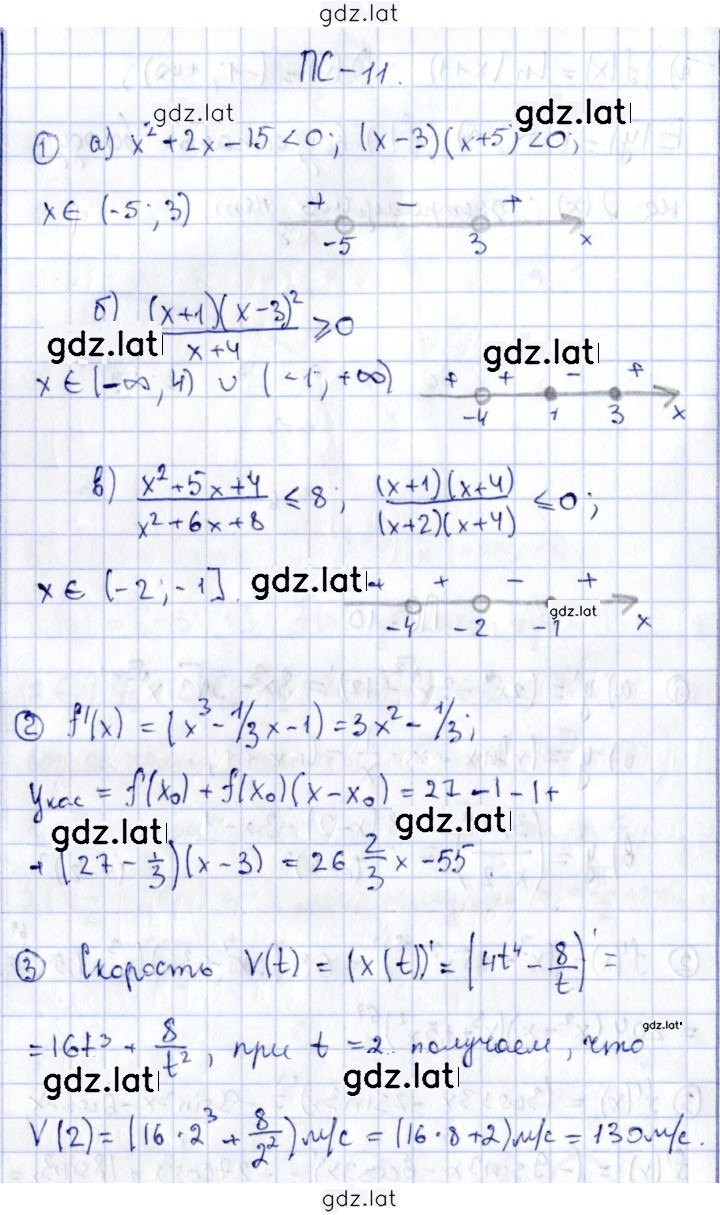 gdz.lat
ПС-11.
gdz.lat gdz.lat
① а) x² + 2x - 15 < 0; (x-3)(x+5) < 0;
x ∈ (-5; 3) + - +
-5 3 x
б) (x+1)(x-3)² / x+4 ≥ 0
gdz.lat gdz.lat
x ∈ (-∞, 4) ∪ (-1, +∞) + + - +
-4 1 3 x
в) x²+5x+4 / x²+6x+8 ≤ 8; (x+1)(x+4) / (x+2)(x+4) ≤ 0;
x ∈ (-2; -1]. gdz.lat + + - +
gdz.lat
-4 -2 -1 x
② f'(x) = (x³ - 1/3 x - 1) = 3x² - 1/3;
Yкас = f'(x₀) + f(x₀)(x - x₀) = 27 - 1 - 1 +
gdz.lat gdz.lat
+ (27 - 1/3)(x - 3) = 26 2/3 x - 55.
③ Скорость V(t) = (x(t))' = (4t⁴ - 8/t)' =
gdz.lat
= 16t³ + 8/t², при t = 2 получаем, что
gdz.lat gdz.lat
V(2) = (16 · 2³ + 8/2²) м/с = (16 · 8 + 2) м/с = 130 м/с.
gdz.lat